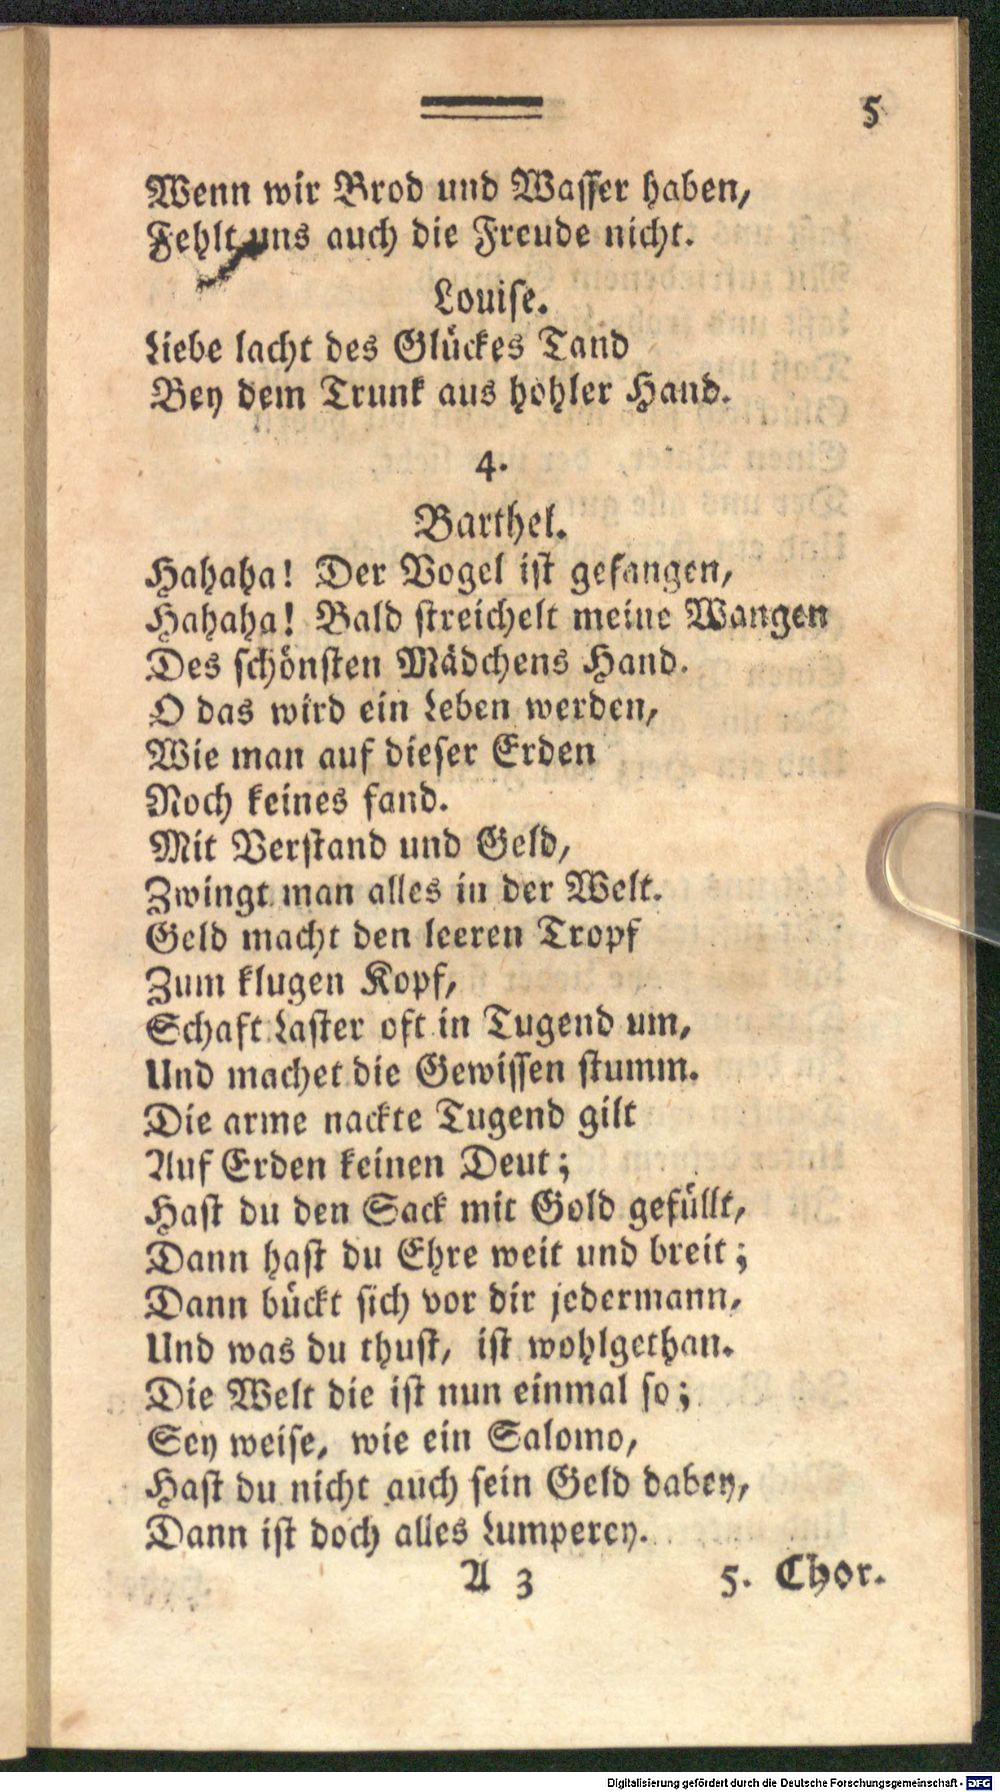 5
Wenn wir Brod und Wasser haben,
Fehlt uns auch die Freude nicht.
Louise.
Liebe lacht des Glückes Tand
Bey dem Trunk aus hohler Hand.
4.
Barthel.
Hahaha! Der Vogel ist gefangen,
Hahaha! Bald streichelt meine Wangen
Des schönsten Mädchens Hand.
O das wird ein Leben werden,
Wie man auf dieser Erden
Noch keines fand.
Mit Verstand und Geld,
Zwingt man alles in der Welt.
Geld macht den leeren Tropf
Zum klugen Kopf,
Schaft Laster oft in Tugend um,
Und machet die Gewissen stumm.
Die arme nackte Tugend gilt
Auf Erden keinen Deut;
Hast du den Sack mit Gold gefüllt,
Dann hast du Ehre weit und breit;
Dann bückt sich vor dir jedermann,
Und was du thust, ist wohlgethan.
Die Welt die ist nun einmal so;
Sey weise, wie ein Salomo,
Hast du nicht auch sein Geld dabey,
Dann ist doch alles Lumperey.
A 3 5. Chor.
Digitalisierung gefördert durch die Deutsche Forschungsgemeinschaft - DFG